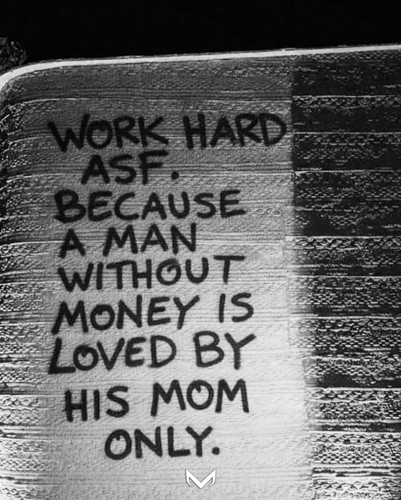 WORK HARD
ASF.
BECAUSE
A MAN
WITHOUT
MONEY IS
LOVED BY
HIS MOM
ONLY.